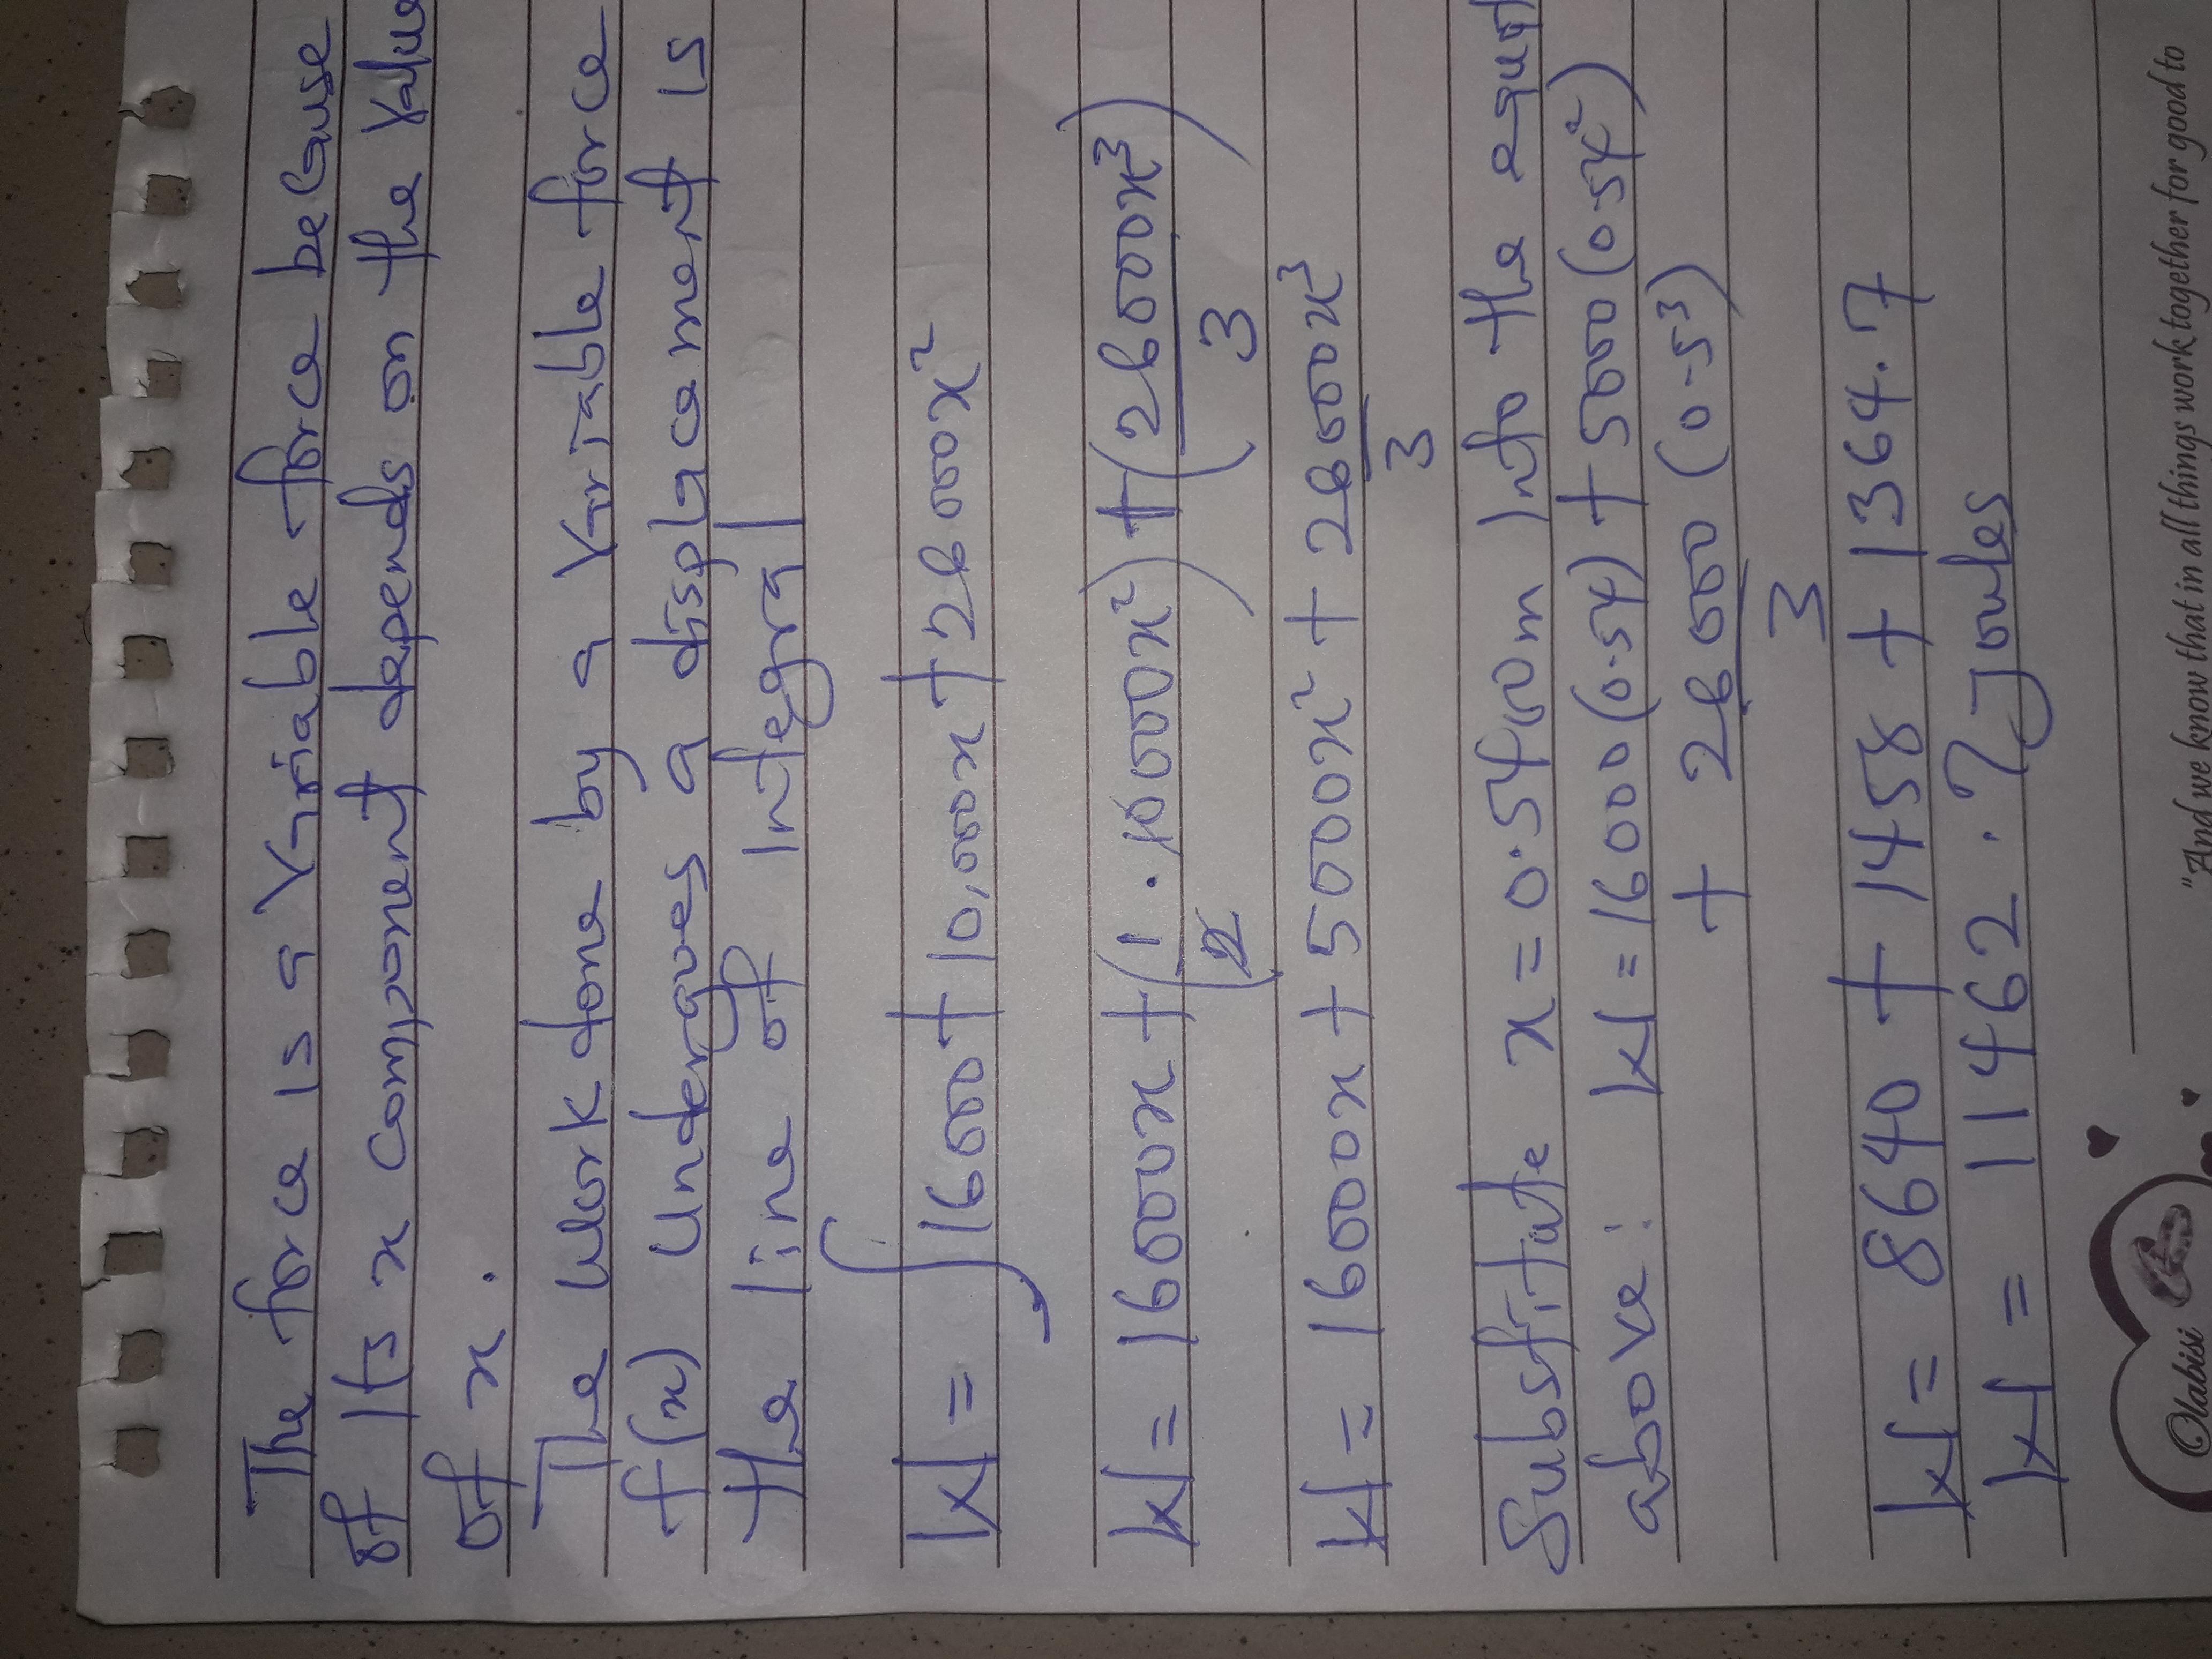 The force is a variable force because
of Its x component depends on the value
of x.
The work done by a variable force
f(x) undergoes a displacement is
the line of integral
W = ∫1600 + 10,000x + 26000x²
W = 16000x + (1/2 . 10000x²) + (26000x³/3)
W = 16000x + 5000x² + 26000x³/3
Substitute x = 0.540m into the equat
above: W = 16000(0.54) + 5000(0.54²)
+ 26000 (0.5³)/3
W = 8640 + 1458 + 1364.7
W = 11462.7 Joules
"And we know that in all things work together for good to
Olabisi